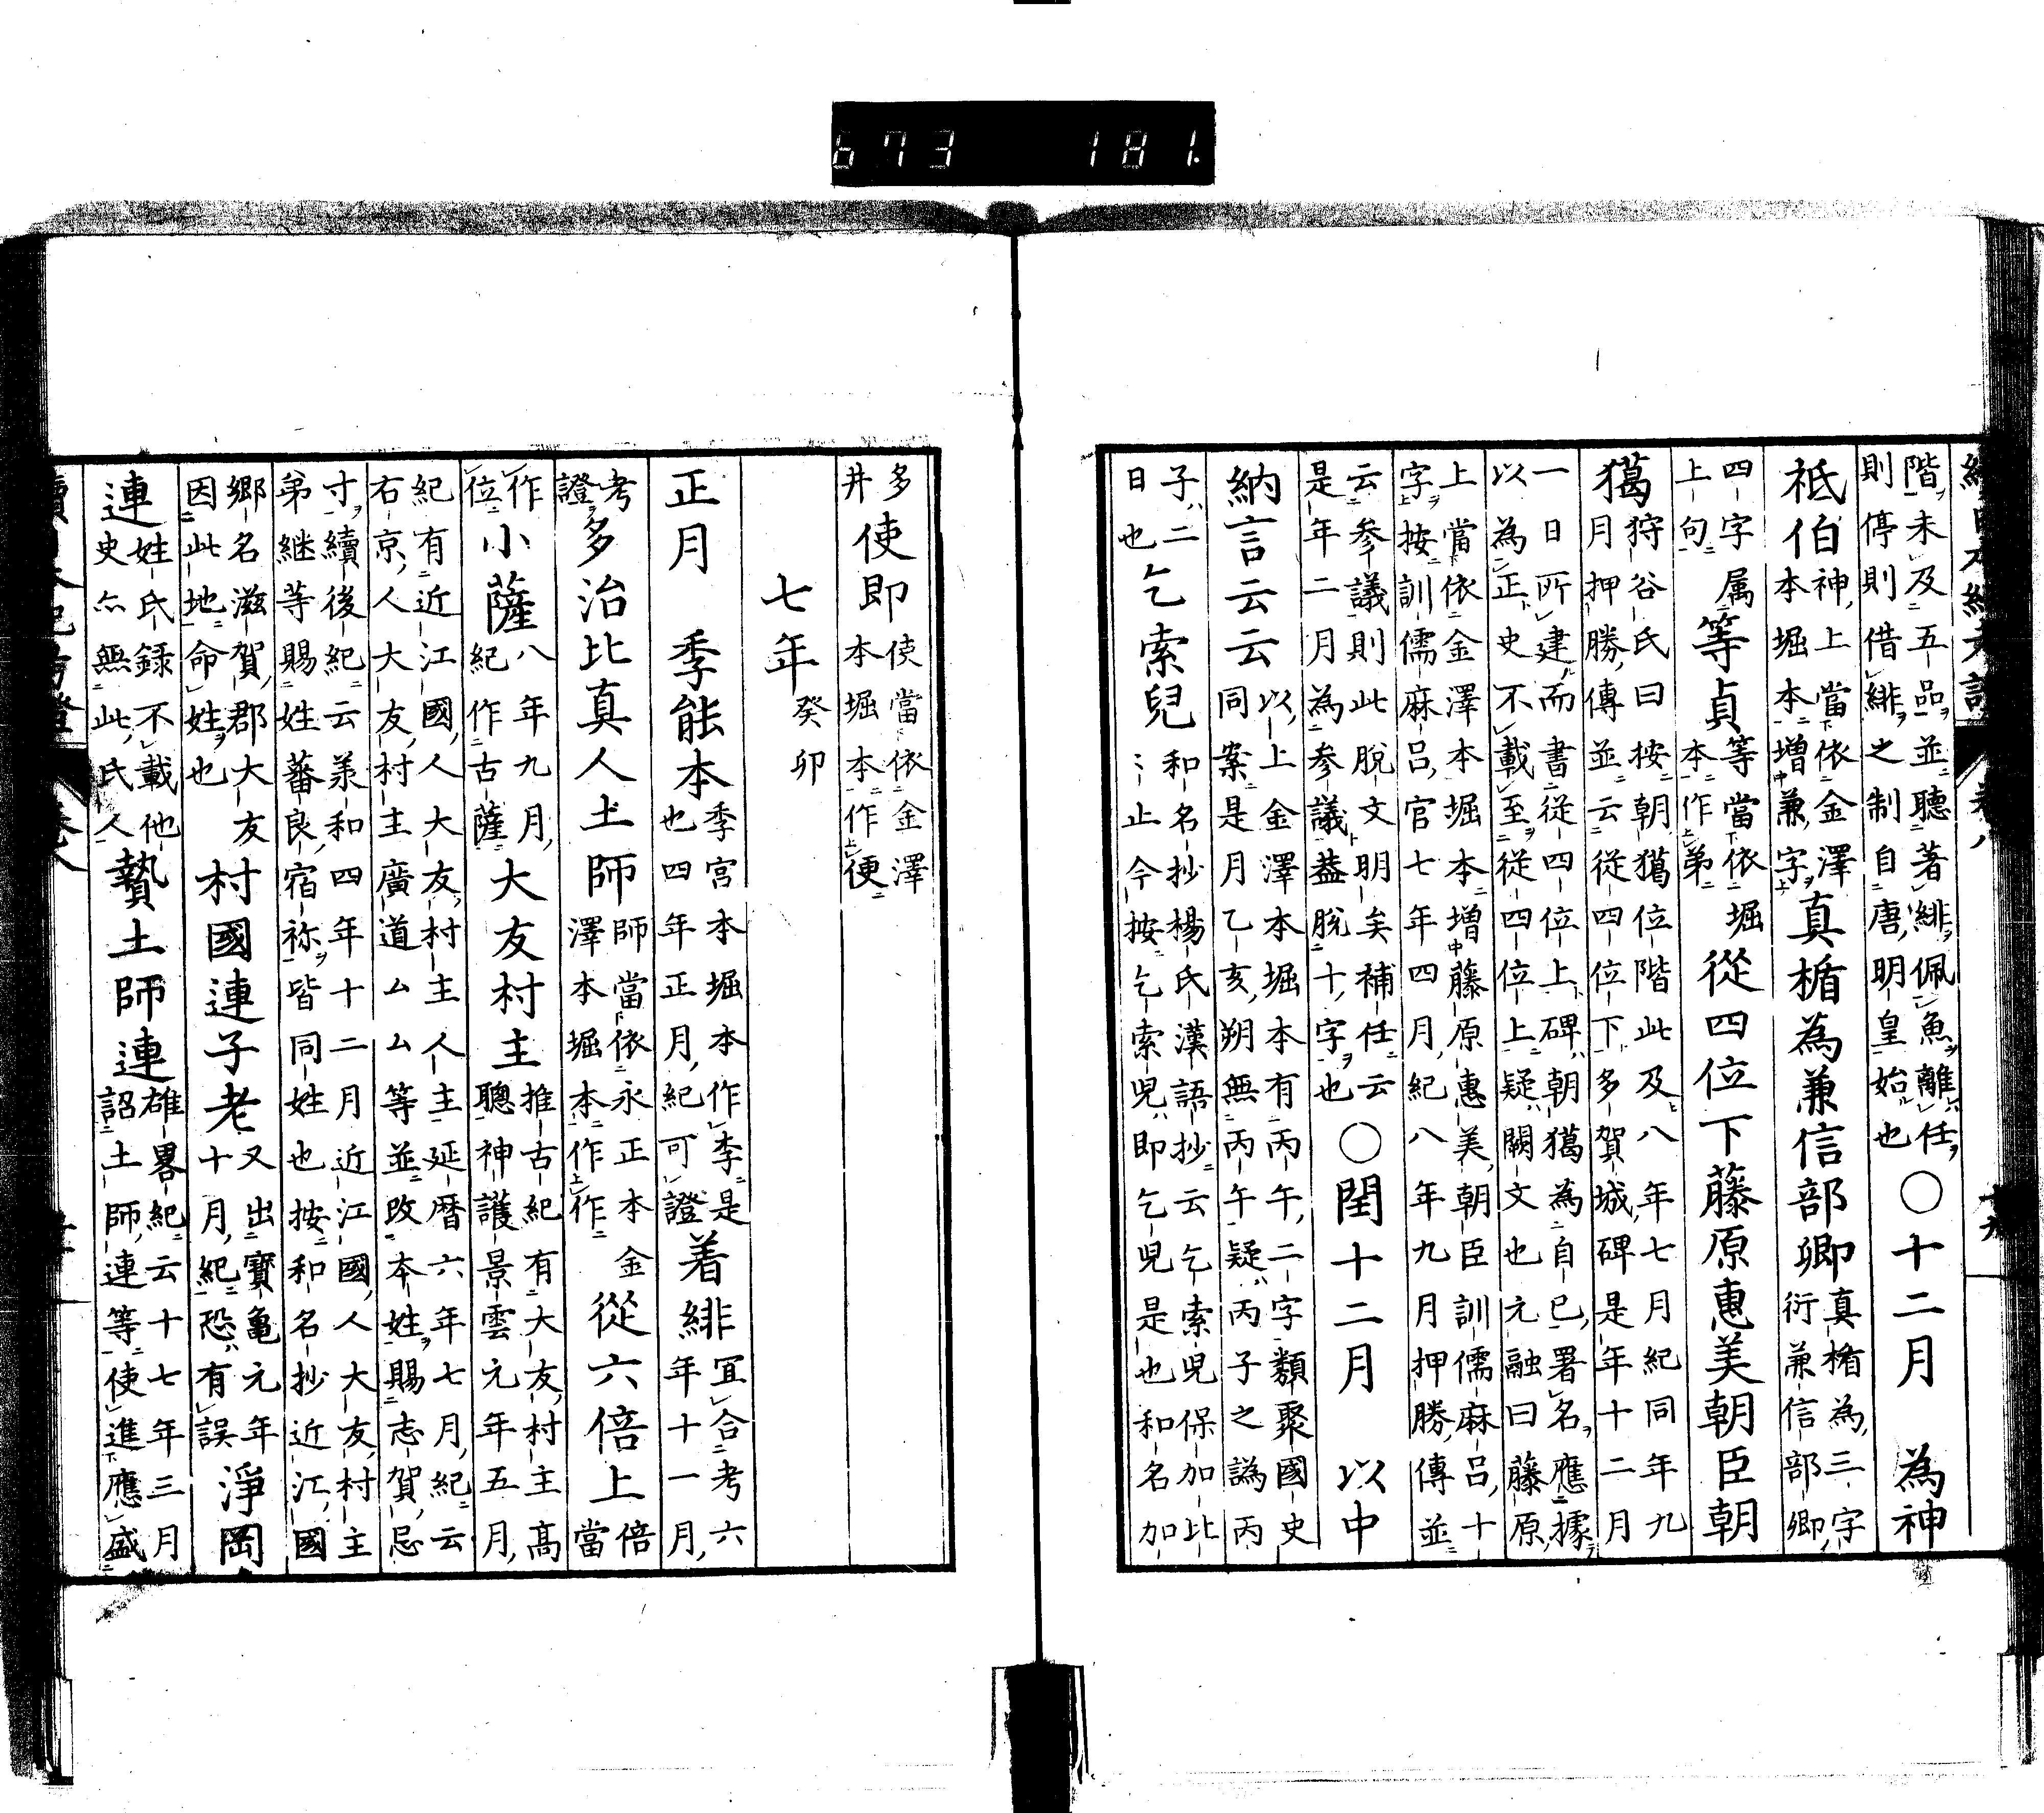 673 181
階未及五品並聽著緋佩魚離任
則停則借緋之制自唐明皇始也
〇十二月 為神
祗伯
神上當依金澤
本堀本增兼字
真楯為兼信部卿
真楯為三字
衍兼信部卿
四字
上句
属等貞
等當依堀
本作弟
從四位下藤原惠美朝臣朝
獦
狩谷氏曰按朝獦位階此及八年七月紀同年九
月押勝傳並云從四位下多賀城碑是年十二月
一日所建而書從四位上碑朝獦為自己署名應據
以為正史不載至從四位上疑闕文也元融曰藤原
上當依金澤本堀本增藤原惠美朝臣訓儒麻呂十
字按訓儒麻呂官七年四月紀八年九月押勝傳並
云參議則此脫文明矣補任云
是年二月為參議蓋脫十字也
〇閏十二月 以中
納言云云
以上金澤本堀本有丙午二字類聚國史
同案是月乙亥朔無丙午疑丙子之譌丙
子二
日也
乞索兒
和名抄楊氏漢語抄云乞索兒保加比
々止今按乞索兒即乞兒是也和名加
多
井
使即
使當依金澤
本堀本作便
七年
癸卯
正月 季能本
季宮本堀本作李是
也四年正月紀可證
着緋
宜合考六
年十一月
考
證
多治比真人土師
師當依永正本金
澤本堀本作作
從六倍上
倍當
作
位
小薩
八年九月
紀作古薩
大友村主
推古紀有大友村主高
聰神護景雲元年五月
紀有近江國人大友村主人主延曆六年七月紀云
右京人大友村主廣道ムム等並改本姓賜志賀忌
寸續後紀云羕和四年十二月近江國人大友村主
弟継等賜姓蕃良宿祢皆同姓也按和名抄近江國
鄉名滋賀郡大友
因此地命姓也
村國連子老
又出寶亀元年
十月紀恐有誤
淨岡
連
姓氏録不載他
史亦無此氏人
贄土師連
雄畧紀云十七年三月
詔土師連等使進應盛